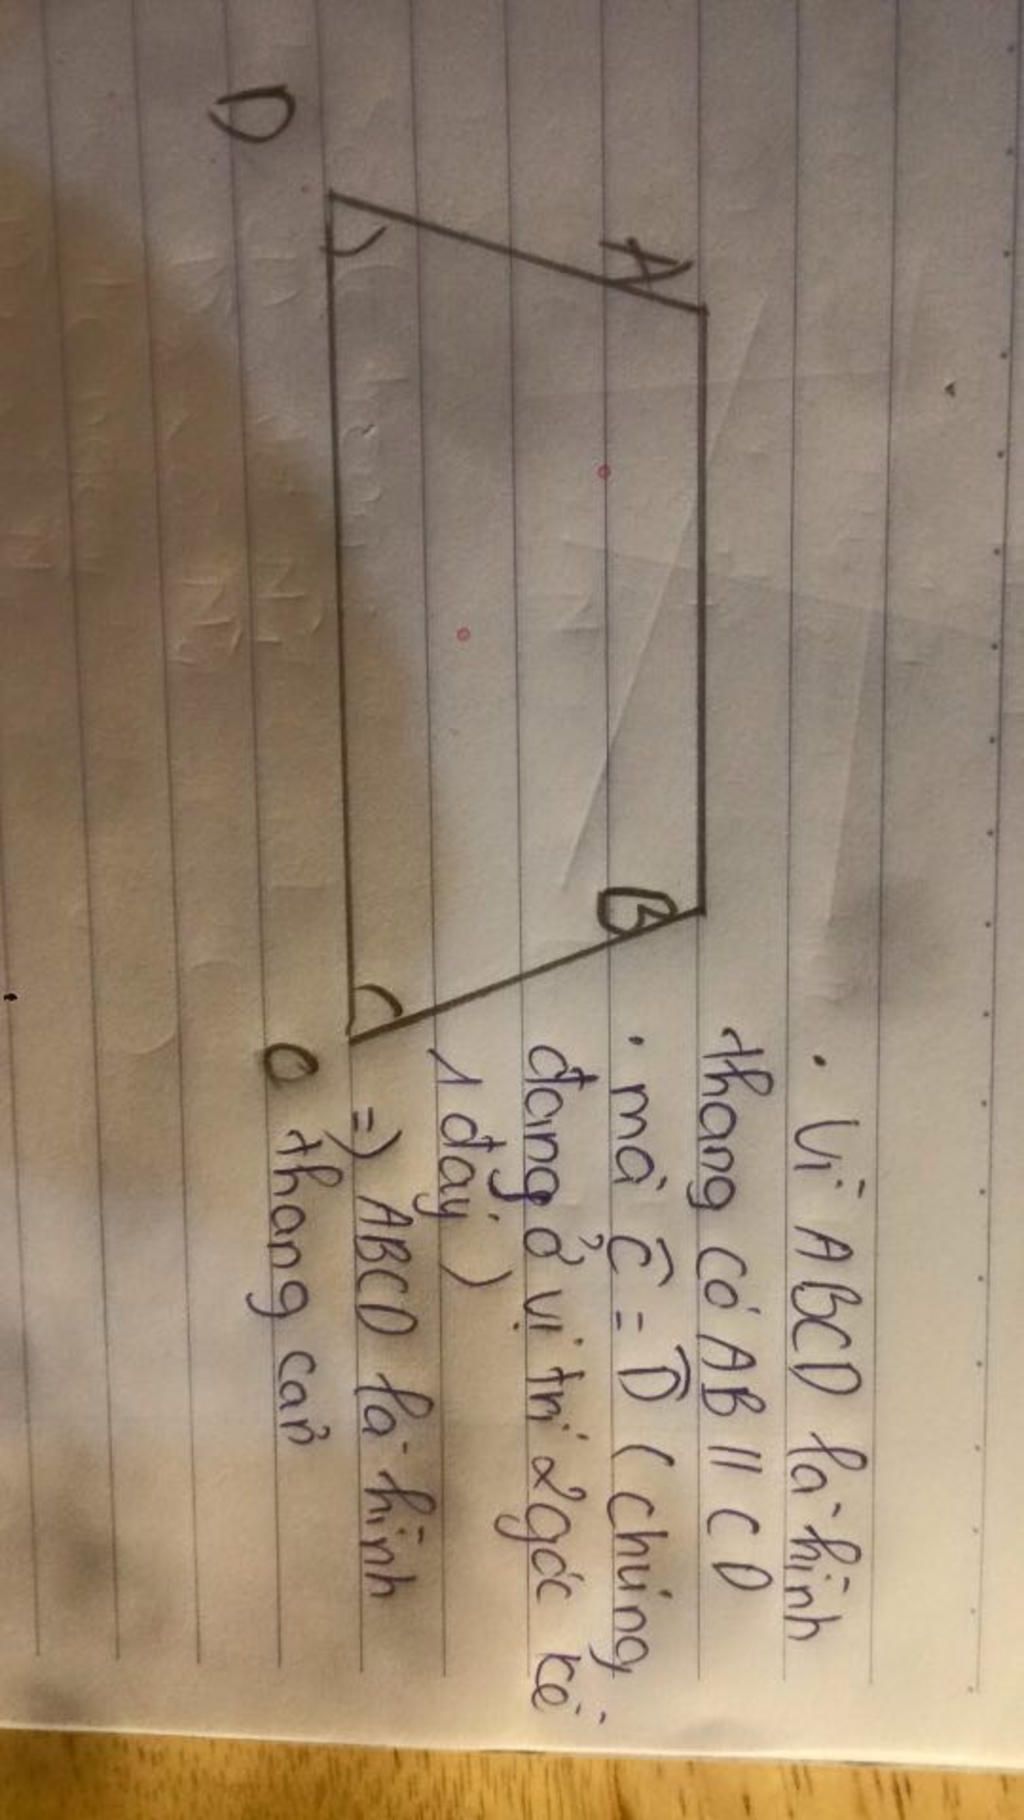 A
B
D
C
. Vì ABCD là hình
thang có AB // CD
. mà Ĉ = D̂ ( chúng
đang ở vị trí 2 góc kề
1 đáy )
=) ABCD là hình
thang cân